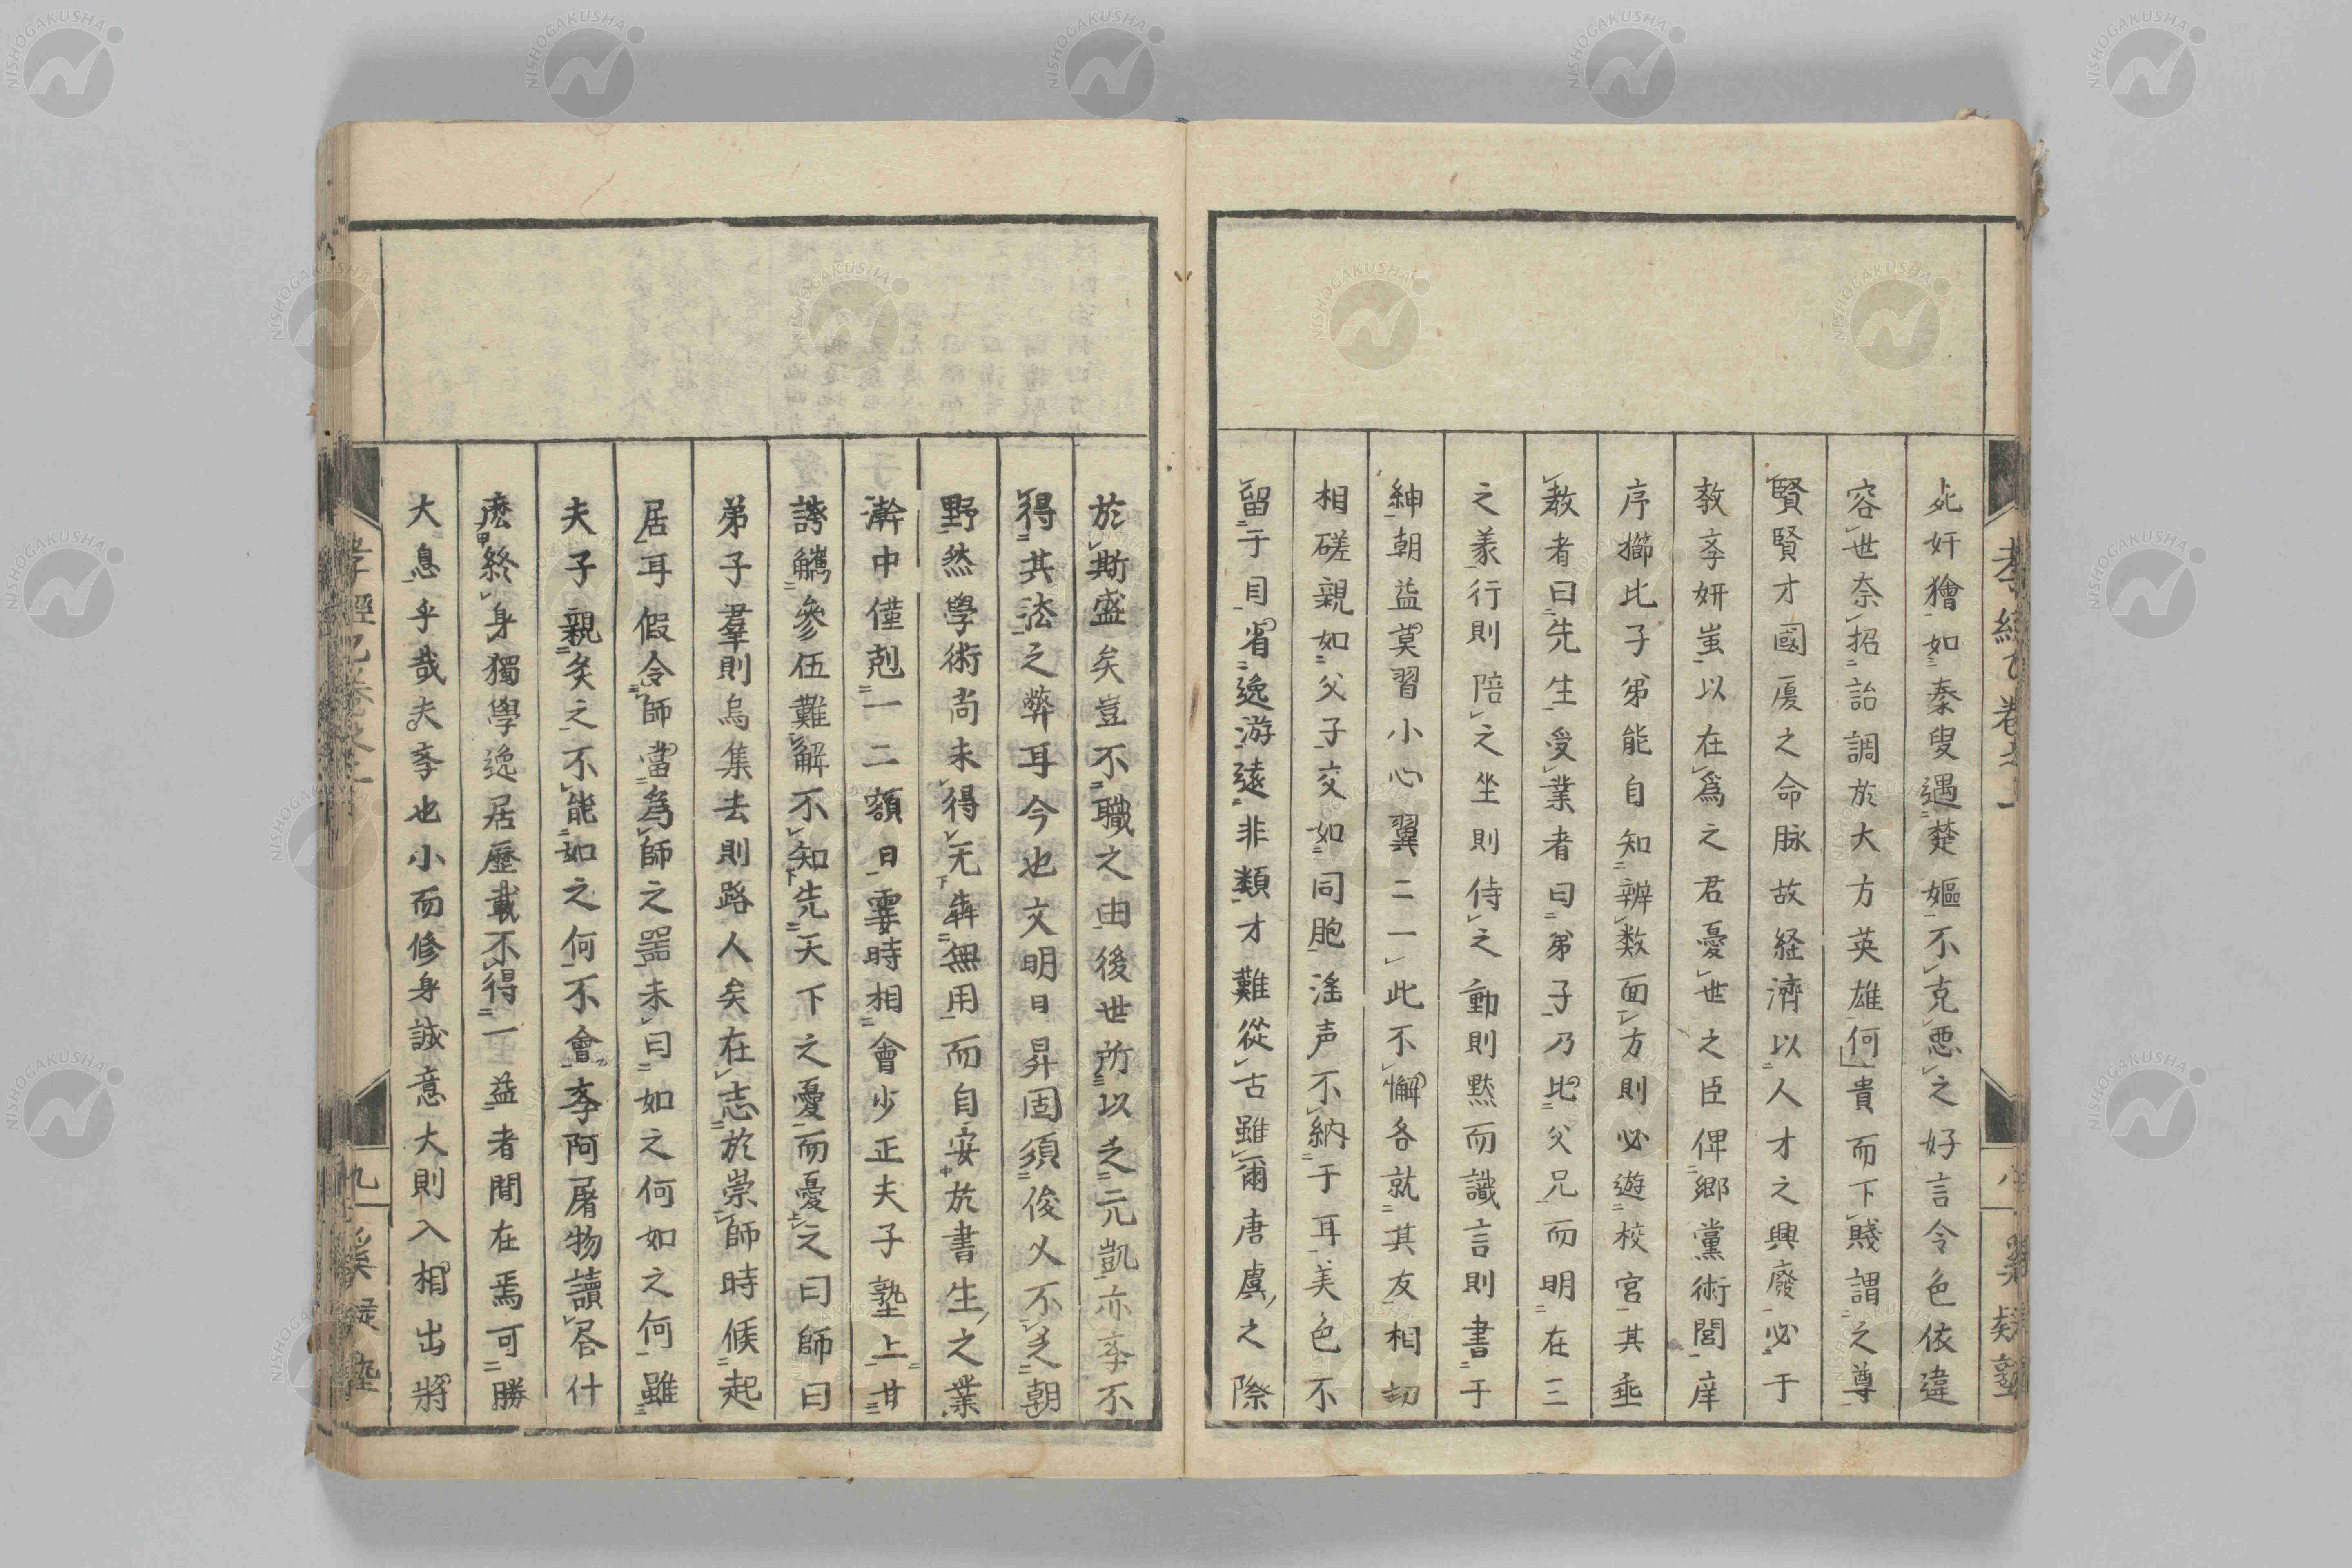 死奸獪如秦叟遇楚嫗不克悪之好言令色依違
容世奈招詒調於大方英雄何貴而下賤謂之尊
賢賢才國厦之命脉故経済以人才之興廢必于
教孝妍蚩以在為之君憂世之臣俾郷黨術閭庠
序櫛比子弟能自知辨数面方則必遊校宮其垂
教者曰先生受業者曰弟子乃比父兄而明在三
之義行則陪之坐則侍之動則黙而識言則書于
紳朝益莫習小心翼二一此不懈各就其友相切
相磋親如父子交如同胞滛声不納于耳美色不
留于目省逸游遠非類才難從古雖爾唐虞之際
於斯盛矣豈不職之由後世所以乏元凱亦孝不
得其法之弊耳今也文明日昇固須俊乂不乏朝
野然學術尚未得无犇無用而自安於書生之業
澣中僅剋一二額日霎時相會少正夫子塾上廿
誇觿參伍難解不知先天下之憂而憂之曰師曰
弟子羣則烏集去則路人矣在志於崇師時候起
居耳假令師當為師之器未曰如之何如之何雖
夫子親炙之不能如之何不會孝阿屠物讀咎什
麽終身獨學逸居歴載不得一益者間在焉可勝
大息乎哉夫孝也小而修身誠意大則入相出將
孝經 卷之一
九
溪疑塾